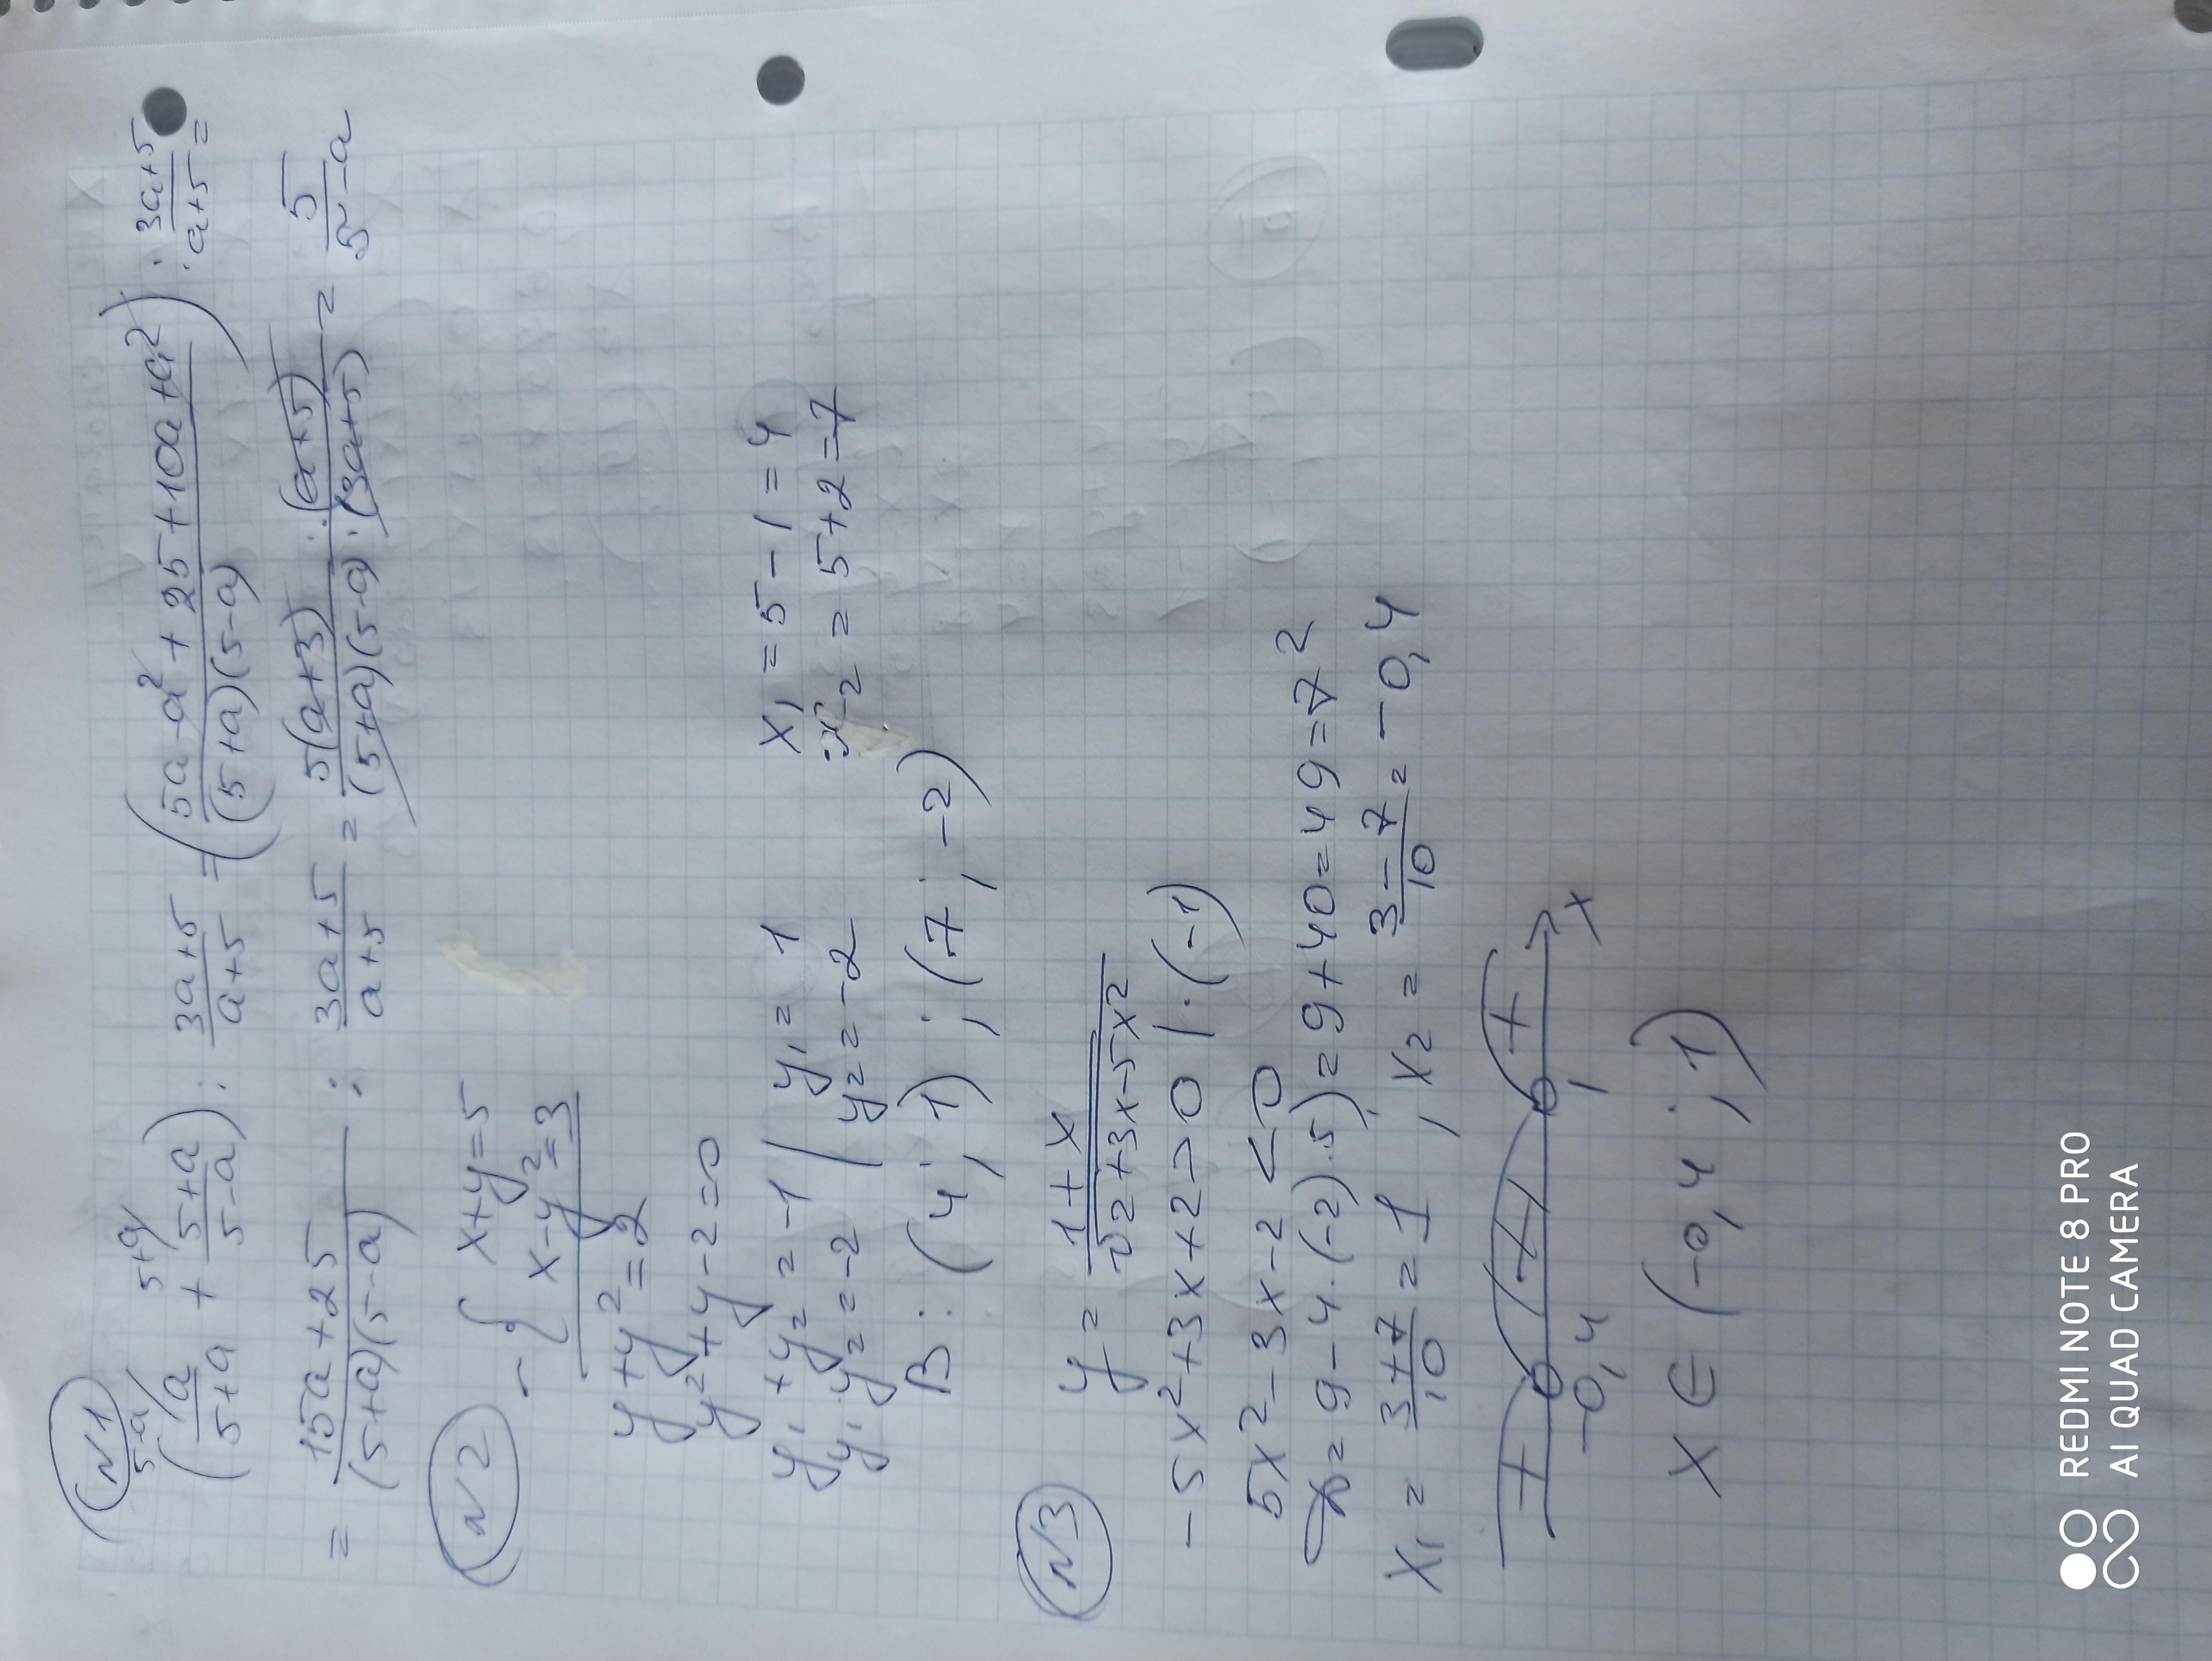 N1
(5-a/ a/(5+a) + 5+a/ (5+a)/(5-a)) : (3a+5)/(a+5) = ((5a-a² + 25+10a+a²)/((5+a)(5-a))) : (3a+5)/(a+5) =
= (15a+25)/((5+a)(5-a)) : (3a+5)/(a+5) = (5(a+3)·(a+5))/((5+a)(5-a)·(3a+5)) = 5/(5-a)
N2
- { x+y=5
x-y²=3
y+y²=2
y²+y-2=0
y₁+y₂=-1 | y₁=1 x₁=5-1=4
y₁·y₂=-2 y₂=-2 x₂=5+2=7
В: (4; 1); (7; -2)
N3
y = (1+x)/√(2+3x-5x²)
-5x²+3x+2>0 | ·(-1)
5x²-3x-2<0
D=9-4·(-2)·5)=9+40=49=7²
x₁ = (3+7)/10 = 1, x₂ = (3-7)/10 = -0,4
+ + x
-0,4 1
x ∈ (-0,4; 1)
REDMI NOTE 8 PRO
AI QUAD CAMERA